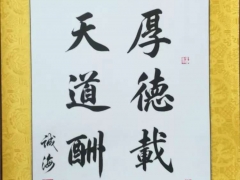 厚德載
天道酬
诚海